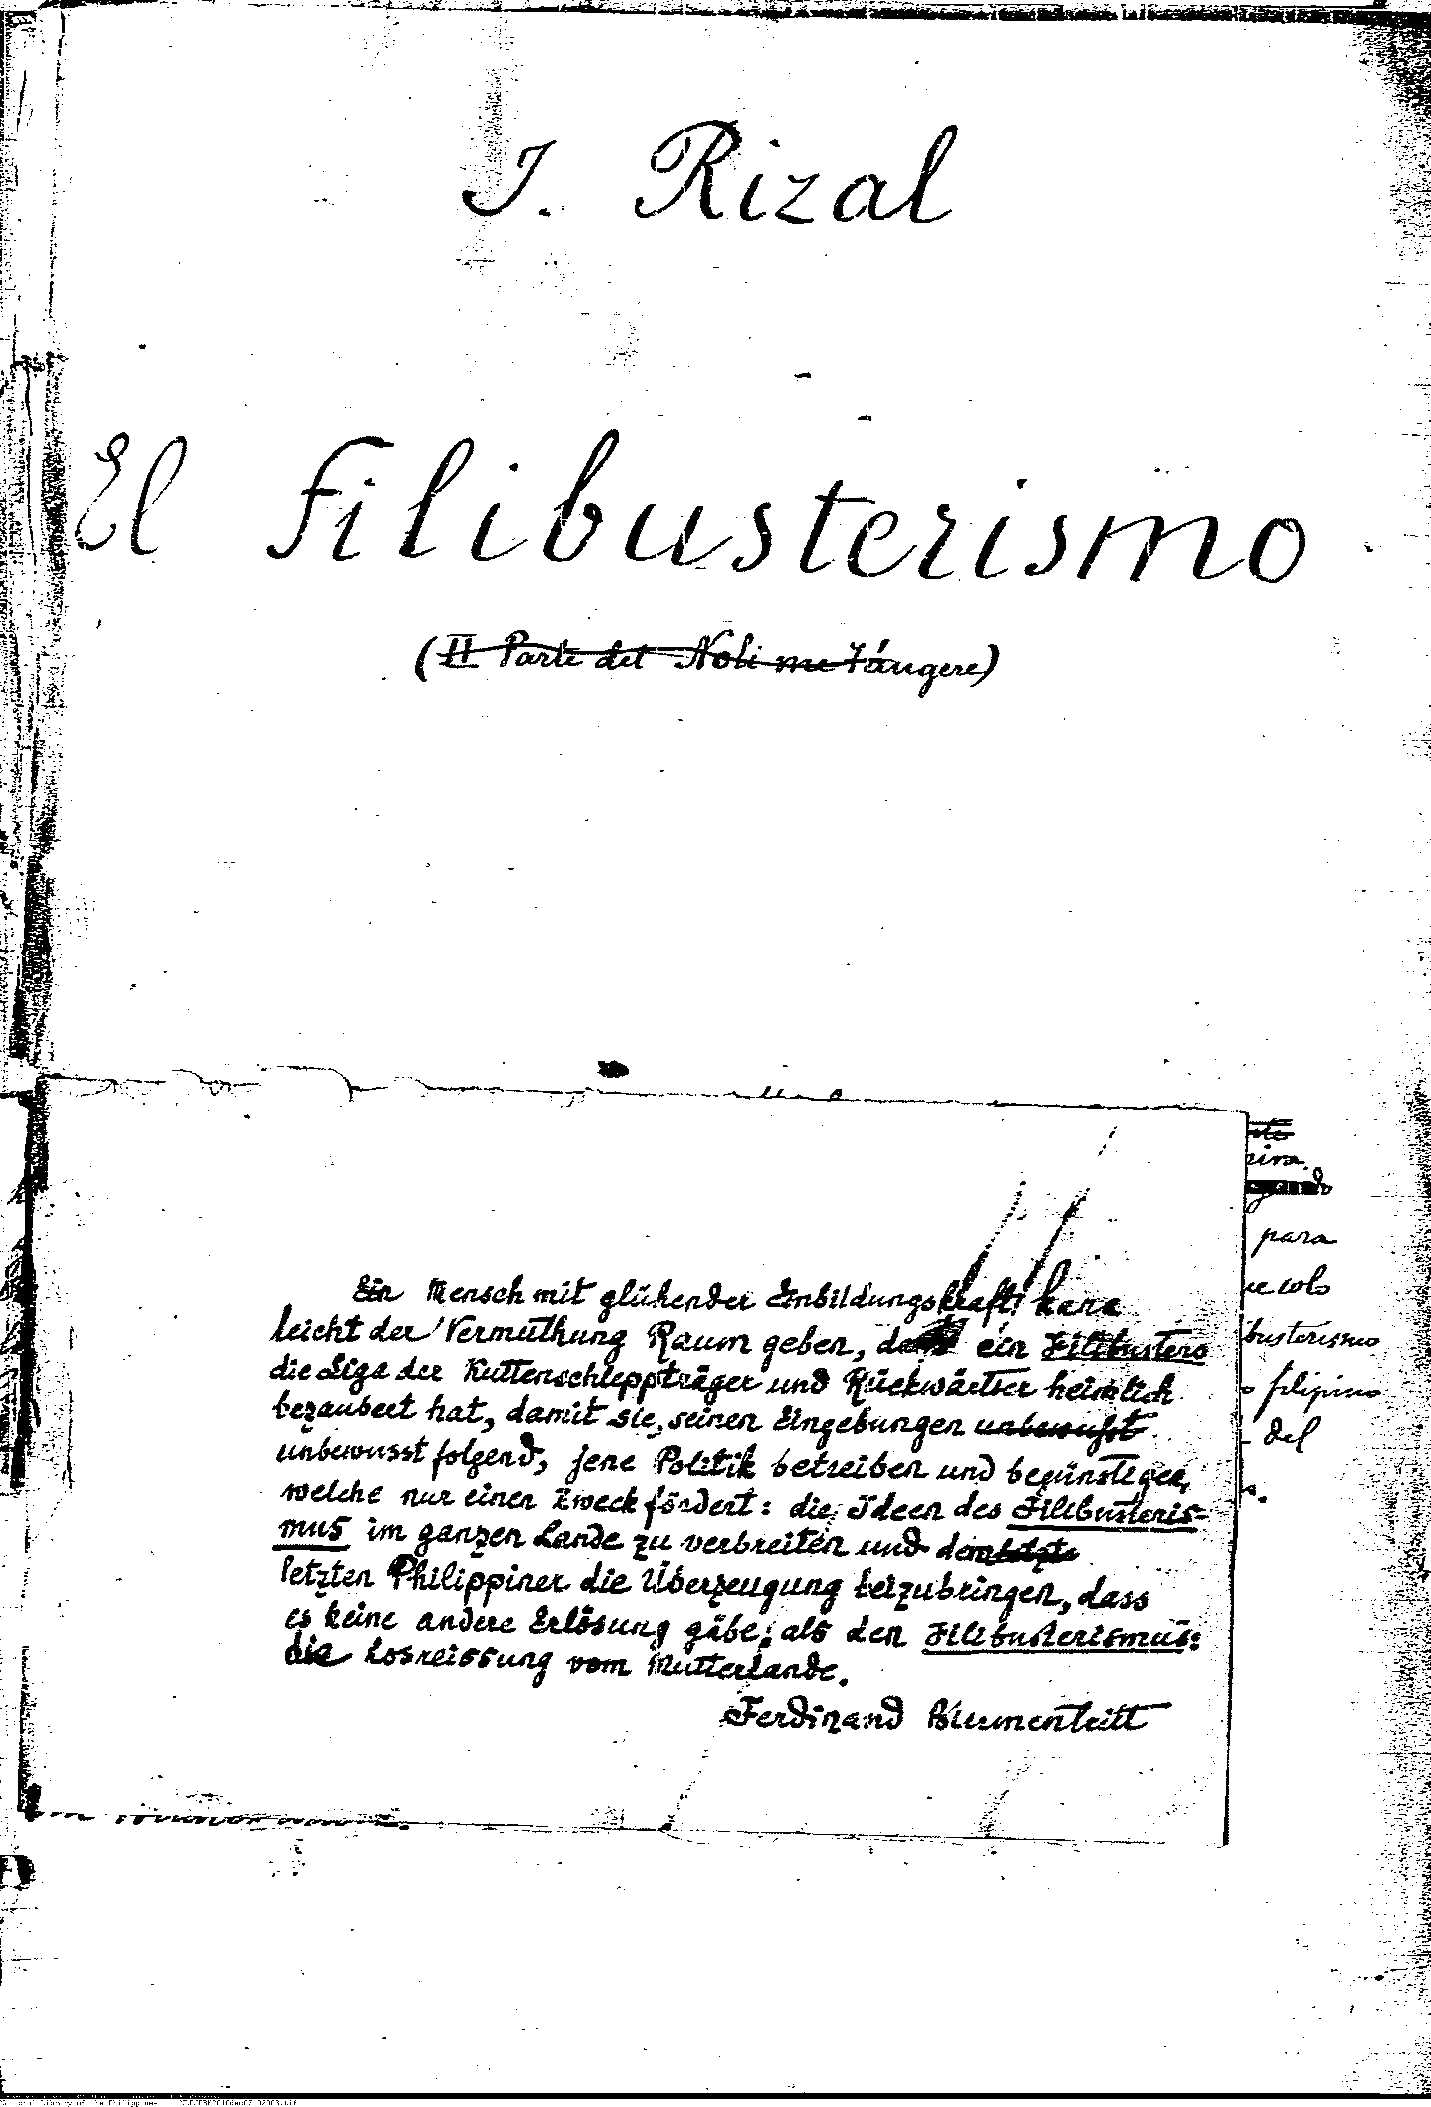 J. Rizal
El filibusterismo
(II Parte del Noli me tángere)
para
busterismo
filipino
del
Ein Mensch mit glühender Einbildungskraft kann
leicht der Vermuthung Raum geben, dass ein Filibustero
die Liga der Kuttenschleppträger und Rückwärtser heimlich
bezaubert hat, damit sie, seinen Eingebungen unbewusst
unbewusst folgend, jene Politik betreiben und begünstigen,
welche nur einen Zweck fördert: die Ideen des Filibusteris-
mus im ganzen Lande zu verbreiten und dem letzte
letzten Philippiner die Überzeugung beizubringen, dass
es keine andere Erlösung gäbe, als den Filibusterismus:
die Losreissung vom Mutterlande.
Ferdinand Blumentritt